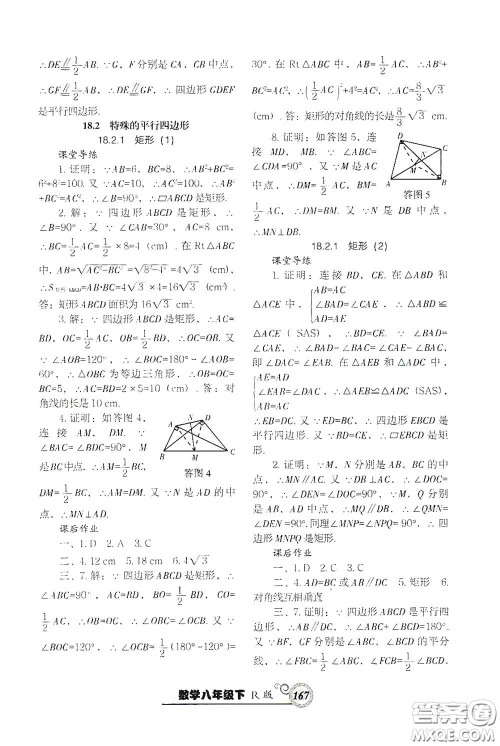 ∴DE∥=1/2AB. ∵G,F分别是CA,CB中点,
∴GF∥=1/2AB,∴DE∥=GF,∴四边形GDEF
是平行四边形.
18.2 特殊的平行四边形
18.2.1 矩形(1)
课堂导练
1.证明:∵AB=6,BC=8,∴AB²+BC²=
6²+8²=100.又∵AC=10,∴AC²=100,∴AB²
+BC²=AC²,∴∠B=90°,∴▱ABCD是矩形.
2.解:∵四边形ABCD是矩形,∴
∠B=90°.又∵∠CAB=30°,AC=8 cm,
∴BC=1/2AC=1/2×8=4(cm).在Rt△ABC
中,AB=√(AC²-BC²)=√(8²-4²)=4√3(cm),
=AB·BC=4√3×4=16√3(cm²).
答:矩形ABCD面积为16√3 cm².
3.解:∵四边形ABCD是矩形,∴AC=
BD,OC=1/2AC,OB=1/2BD,∴OC=OB.又
∵∠AOB=120°,∴∠BOC=180°-∠AOB
=60°,∴△OBC为等边三角形,∴OB=OC=
BC=5,∴AC=BD=2×5=10(cm).答:对
角线的长是10 cm.
4.证明:如答图4,
连接AM,DM.∵
∠BAC=∠BDC=90°,M
是BC中点.∴AM=1/2BC,
答图4
DM=1/2BC,∴AM=DM.又∵N是AD的中
点,∴MN⊥AD.
课后作业
一、1.D 2.A 3.C
二、4.12 cm 5.18 cm 6.4√3
三、7.解:∵四边形ABCD是矩形,∴
∠ABC=90°,AC=BD,OB=1/2BD,OC=
1/2AC,∴OB=OC,∴∠OBC=∠OCB.又∵
∠BOC=120°,∴∠OCB=1/2(180°-120°)=
30°.在Rt△ABC中,AB=1/2AC,∴AB²+
BC²=AC²,∴(1/2AC)²+4²=AC²,∴AC=8/3√3
(cm).答:矩形的对角线的长是8/3√3 cm.
8.证明:如答图5,连
接MD,MB.∵∠CBA=
∠CDA=90°,M是AC中
点,∴MD=1/2AC,MB=
答图5
1/2AC,∴DM=BM.又∵N是DB中点,∴
MN⊥BD.
18.2.1 矩形(2)
课堂导练
1.证明:连接BD,CE.在△ABD和
△ACE中,
AB=AC
∠BAD=∠CAE,∴△ABD≌
AD=AE
△ACE(SAS),∴BD=CE.∵∠BAD=
∠CAE,∴∠BAD-∠BAC=∠CAE-∠BAC,
即∠DAC=∠EAB.在△AEB和△ADC中,
AE=AD
∠EAB=∠DAC,∴△AEB≌△ADC(SAS),
AB=AC
∴EB=DC.又∵ED=BC,∴四边形EBCD是
平行四边形.又∵BD=CE,∴▱EBCD是
矩形.
2.证明:∵M,N分别是AB,BC的中
点,∴MN∥AC.又∵DB⊥AC,∴∠DOC=
90°,∴∠DEN=∠DOC=90°.∵M,Q分别
是AB,AD中点,∴MQ∥DB,∴∠QMN=
∠DEN=90°.同理∠MNP=∠NPQ=90°,∴四
边形MNPQ是矩形.
课后作业
一、1.D 2.D 3.C
二、4.AD=BC或AB∥DC 5.矩形 6.
对角线互相垂直
三、7.证明:∵四边形ABCD是平行四
边形,∴AD∥BC,∴∠ABC+∠BCD=180°.
又∵BF,CF分别是∠ABC,∠BCD的平分
线,∴∠FBC=1/2∠ABC,∠FCB=1/2∠BCD,
数学八年级下 R版 167